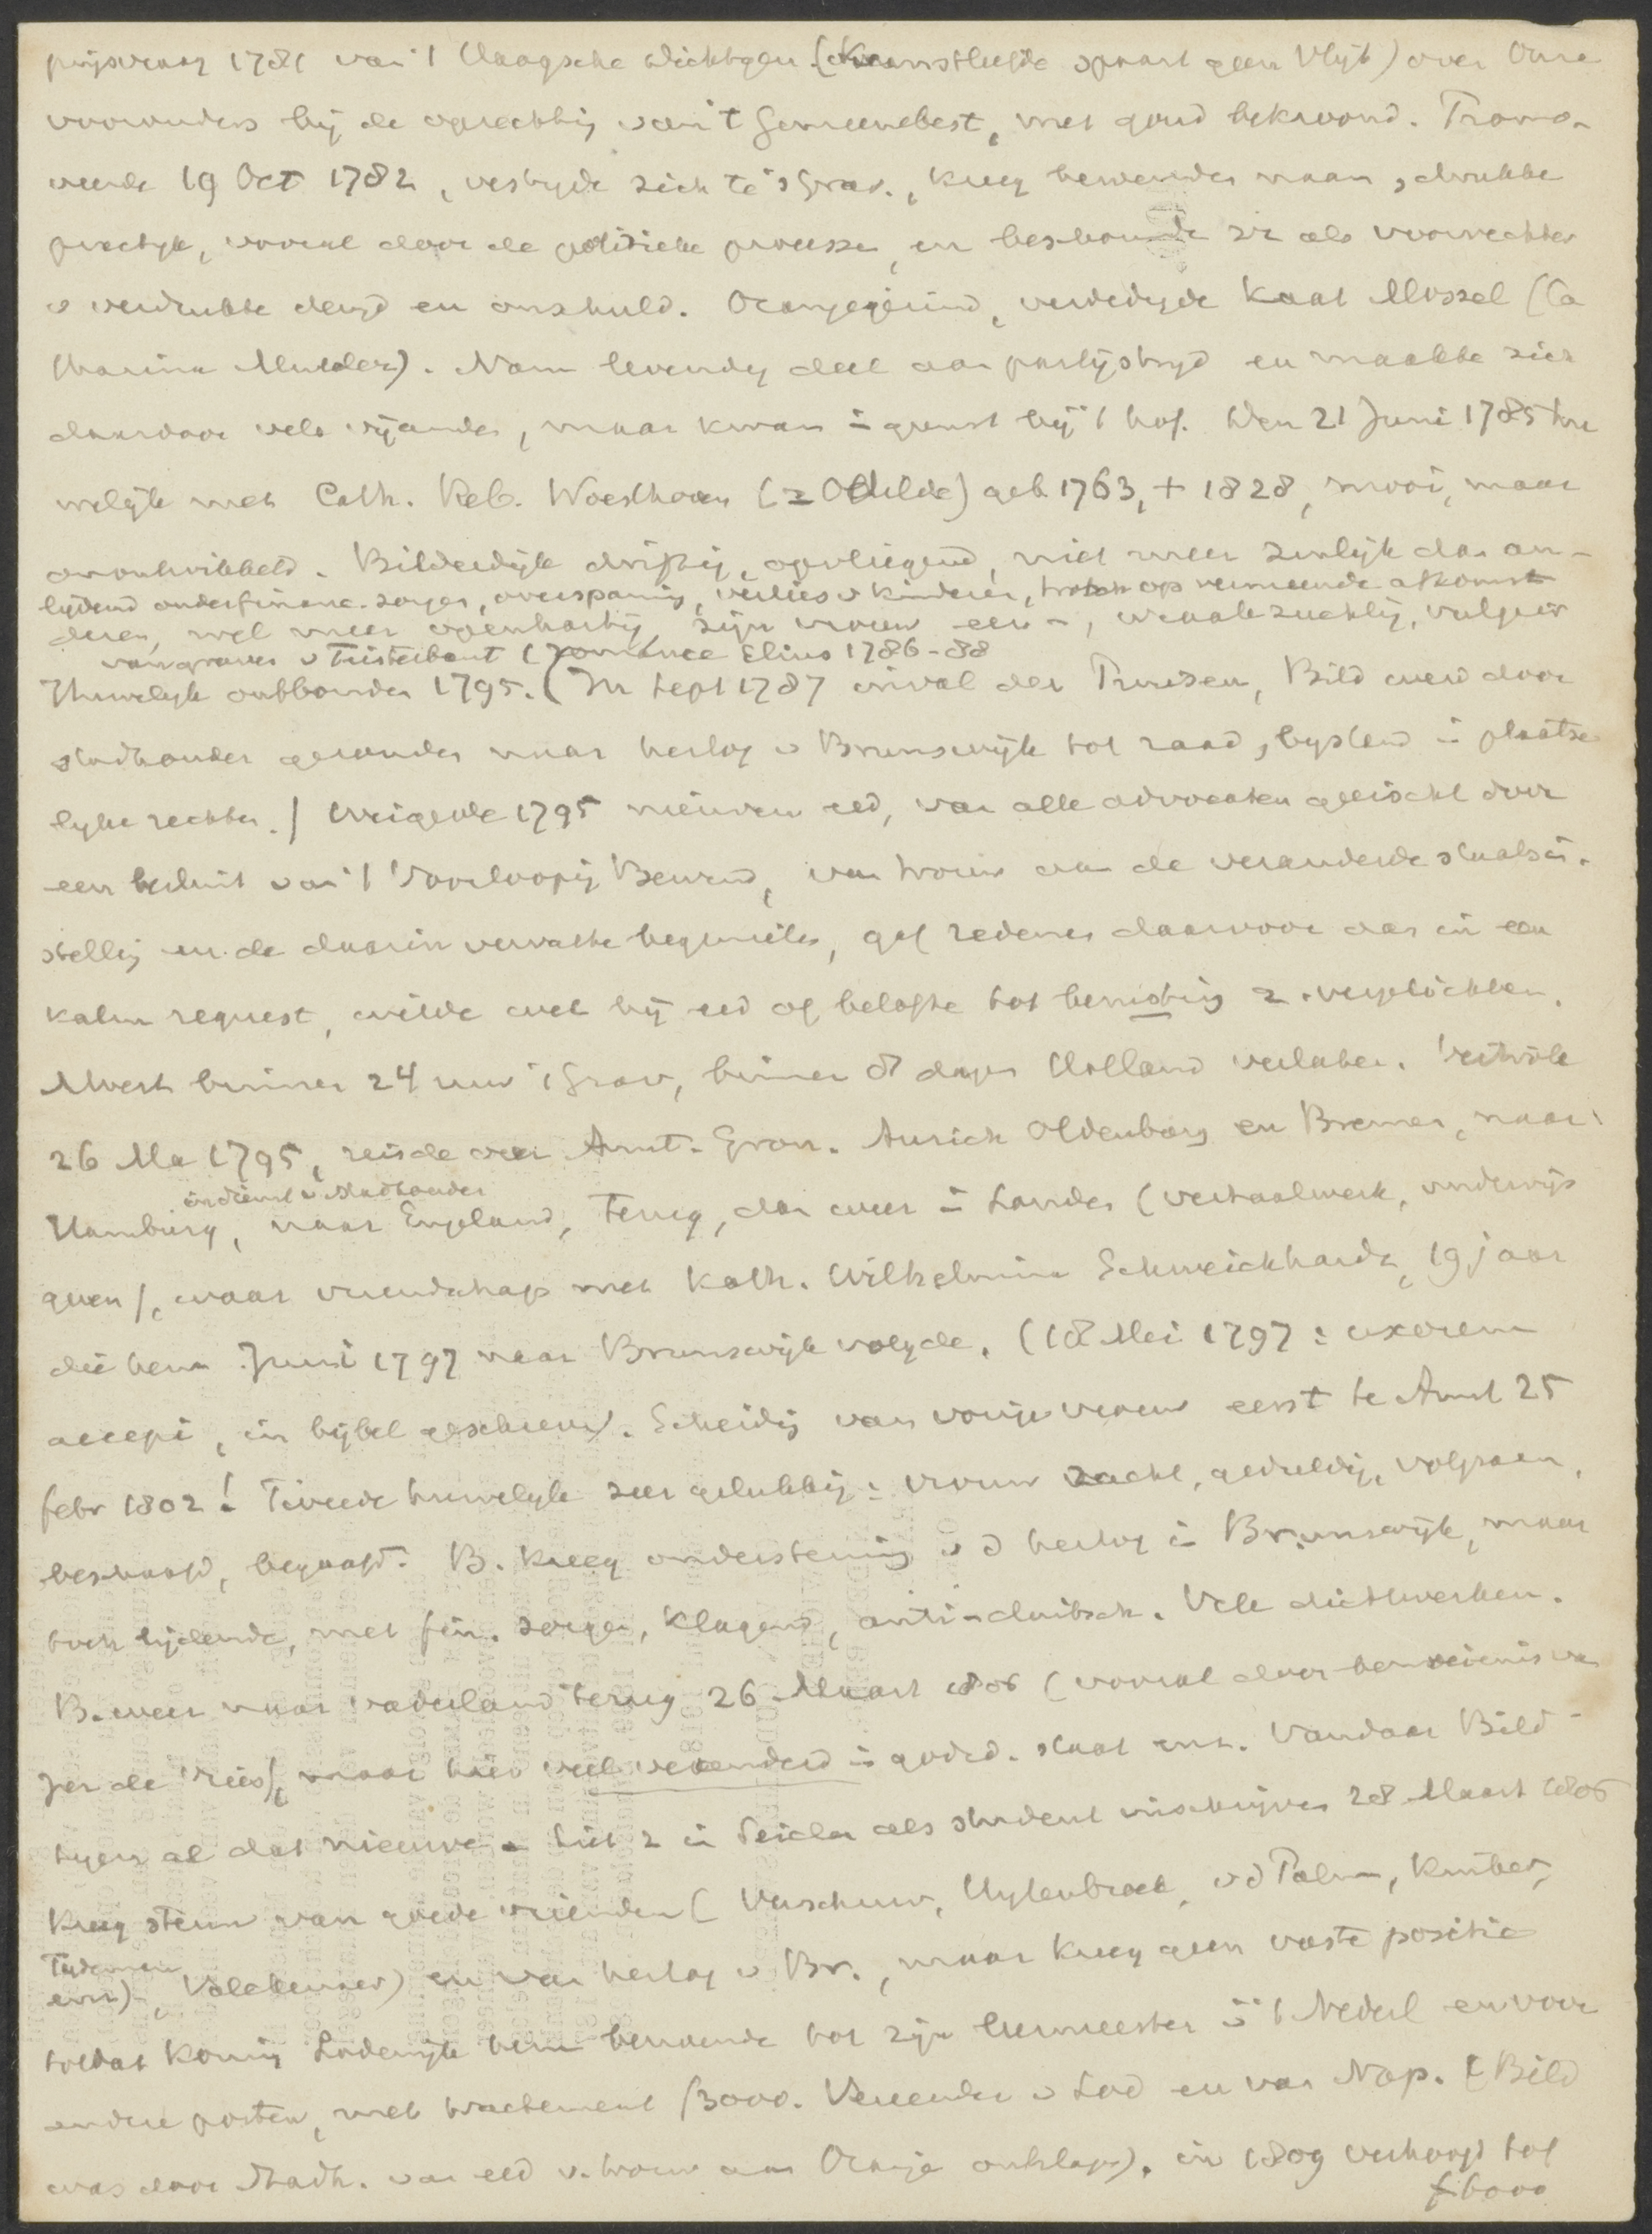 prijsvraag 1781 van 't Haagsche dichtgen. (Kunstliefde spaart geen Vlijt) over Onze
voorouders bij de oprechting van 't Gemeenebest, met goud bekroond. Promo-
veerde 19 Oct 1782, vestigde zich te 's Grav., kreeg bewonder naam, drukke
practijk, vooral door de politieke processen, en beschouwde zn als voorvechter
v verdrukte deugd en onschuld. Oranjegezind, verdedigde Kaat Mossel (Ca
tharina Mulder). Nam levendig deel aan partijstrijd en maakte zich
daardoor vele vijanden, maar kwam in gunst bij 't hof. Den 21 Juni 1785 hu
welijk met Cath. Reb. Woesthoven (= Odilde) geb 1763, + 1828, mooi, maar
onontwikkeld. Bilderdijk driftig, opvliegend, niet meer zinlijk dan an-
lijdend onder financ. zorgen, overspanning, verlies v kinderen, trotsch op vermeende afkomst
deren, wel meer openhartig, zijn vrouw een -, wraakzuchtig, vulgair
van graven v Teisterbant (romance Elius 1786-88
Huwelijk ontbonden 1795. (In Sept 1787 inval der Pruisen, Bild werd door
stadhouder gezonden naar hertog v Brunswijk tot raad, bijstand in plaatse
lijke rechten.) Weigerde 1795 nieuwen eed, van alle advocaten geëischt door
een besluit van 't Voorloopig Bewind, van trouw aan de veranderde staatsin-
stelling en de daarin vervatte beginselen, gaf redenen daarvoor aan in een
kalm request, wilde wel bij eed of belofte tot berusting z. verplichten.
Moest binnen 24 uur 's Grav, binnen 8 dagen Holland verlaten. Vertrok
26 Ma 1795, reisde over Amst. Gron. Aurich Oldenburg en Bremen, naar
in dienst v Stadhouder
Hamburg, naar Engeland, terug, dan weer in Londen (vertaalwerk, onderwijs
geven), waar vriendschap met Kath. Wilhelmina Schweickhardt, 19 jaar
die hem Juni 1797 naar Brunswijk volgde. (18 Mei 1797: uxorem
accepi, in bijbel geschreven). Scheiding van vorige vrouw eerst te Amst 25
febr 1802! Tweede huwelijk zeer gelukkig: vrouw zacht, geduldig, volgzaam,
beschaafd, begaafd. B. kreeg ondersteuning v d hertog in Brunswijk, maar
toch lijdende, met fin. zorgen, klagend, anti-duitsch. Vele dichtwerken.
B. weer naar vaderland terug 26 Maart 1806 (vooral door bemoeienis van
Jer de Vries), maar hier veel veranderd in godsd. staat enz. Vandaar Bild
tegen al dat nieuwe. Liet z in Leiden als student inschrijven 28 Maart 1806
Kreeg steun van goede vrienden (Verschuur, Uylenbroek, v d Palm, Kinker,
Tydeman
enz), Valckenaer) en van hertog v Br., maar kreeg geen vaste positie
totdat Koning Lodewijk hem benoemde tot zijn leermeester in 't Nederl en voor
andere posten, met tractement f3000. Vereerder v Lod en van Nap. (Bild
was door Stadh. van eed v. trouw aan Oranje ontslagen). in 1809 verhoogd tot
f6000